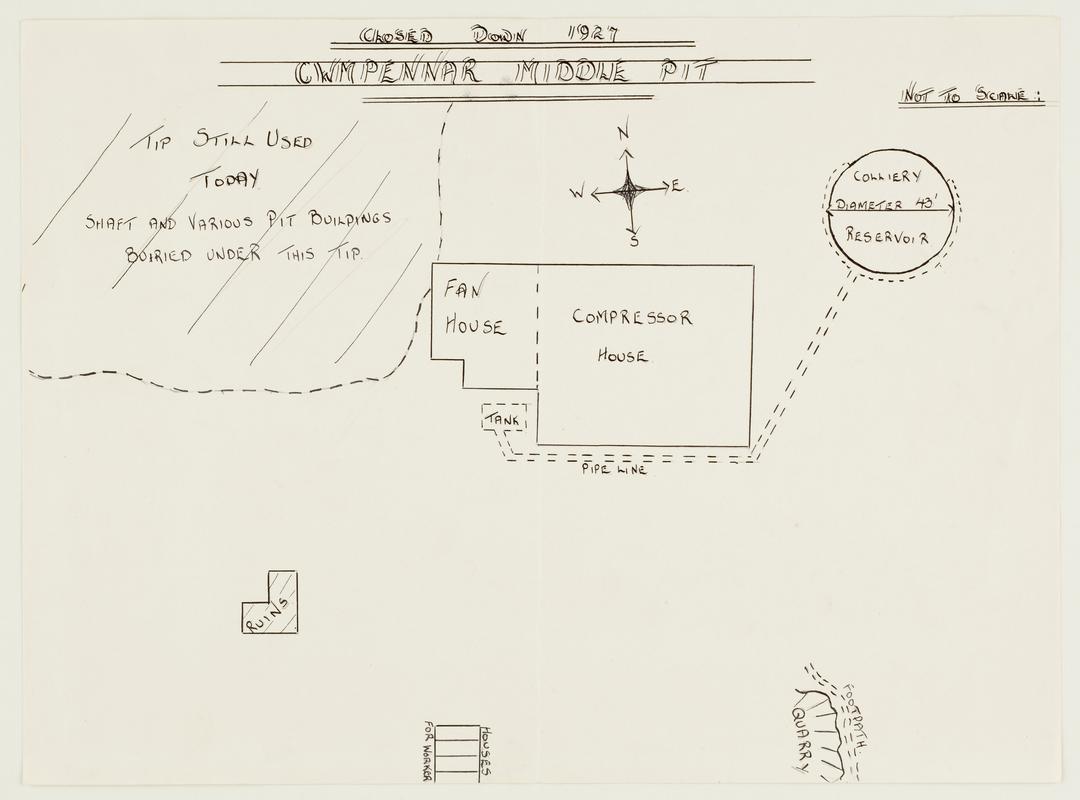 CLOSED DOWN 1927
CWMPENNAR MIDDLE PIT
NOT TO SCALE :
TIP STILL USED
TODAY
SHAFT AND VARIOUS PIT BUILDINGS
BURIED UNDER THIS TIP.
N
W
E
S
COLLIERY
DIAMETER 43'
RESERVOIR
FAN
HOUSE
COMPRESSOR
HOUSE
TANK
PIPE LINE
RUINS
HOUSES
FOR WORKER
FOOTPATH.
QUARRY